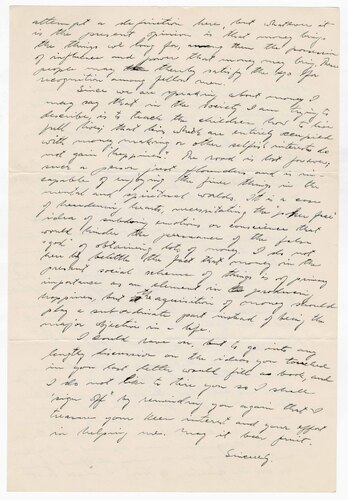 attempt a definition here, but whatever it
is the present opinion is that money brings
the things we long for, among them the possession
of influence and power that money may bring. These
people may thereby satisfy the ego for
recognition among fellow men.
Since we are speaking about money I
may say that in the society I am trying to
describe, is to teach the children how to live
full lives; that lives which are entirely occupied
with money making or other selfish interests do
not gain "happiness". The road is lost forever,
such a person just flounders and is in-
capable of enjoying the finer things in the
mental and spiritual worlds. It is a case
of hardening hearts, necessitating the
idea of subduing emotions or conscience that
would hinder the pursuance of the false
"god" of obtaining lots of money. I do not
here belittle the fact that money in the
present social scheme of things is of primary
importance as an element in the producing
happiness, but the acquisition of money should
play a subordinate part instead of being the
major objective in a life.
I could rave on, but to go into any
lengthy discussion on the ideas you touched
in your last letter would fill a book, and
I do not like to tire you so I shall
"sign off" by reminding you again that I
treasure your keen interest and your effort
in helping me. May it bear fruit.
Sincerely,